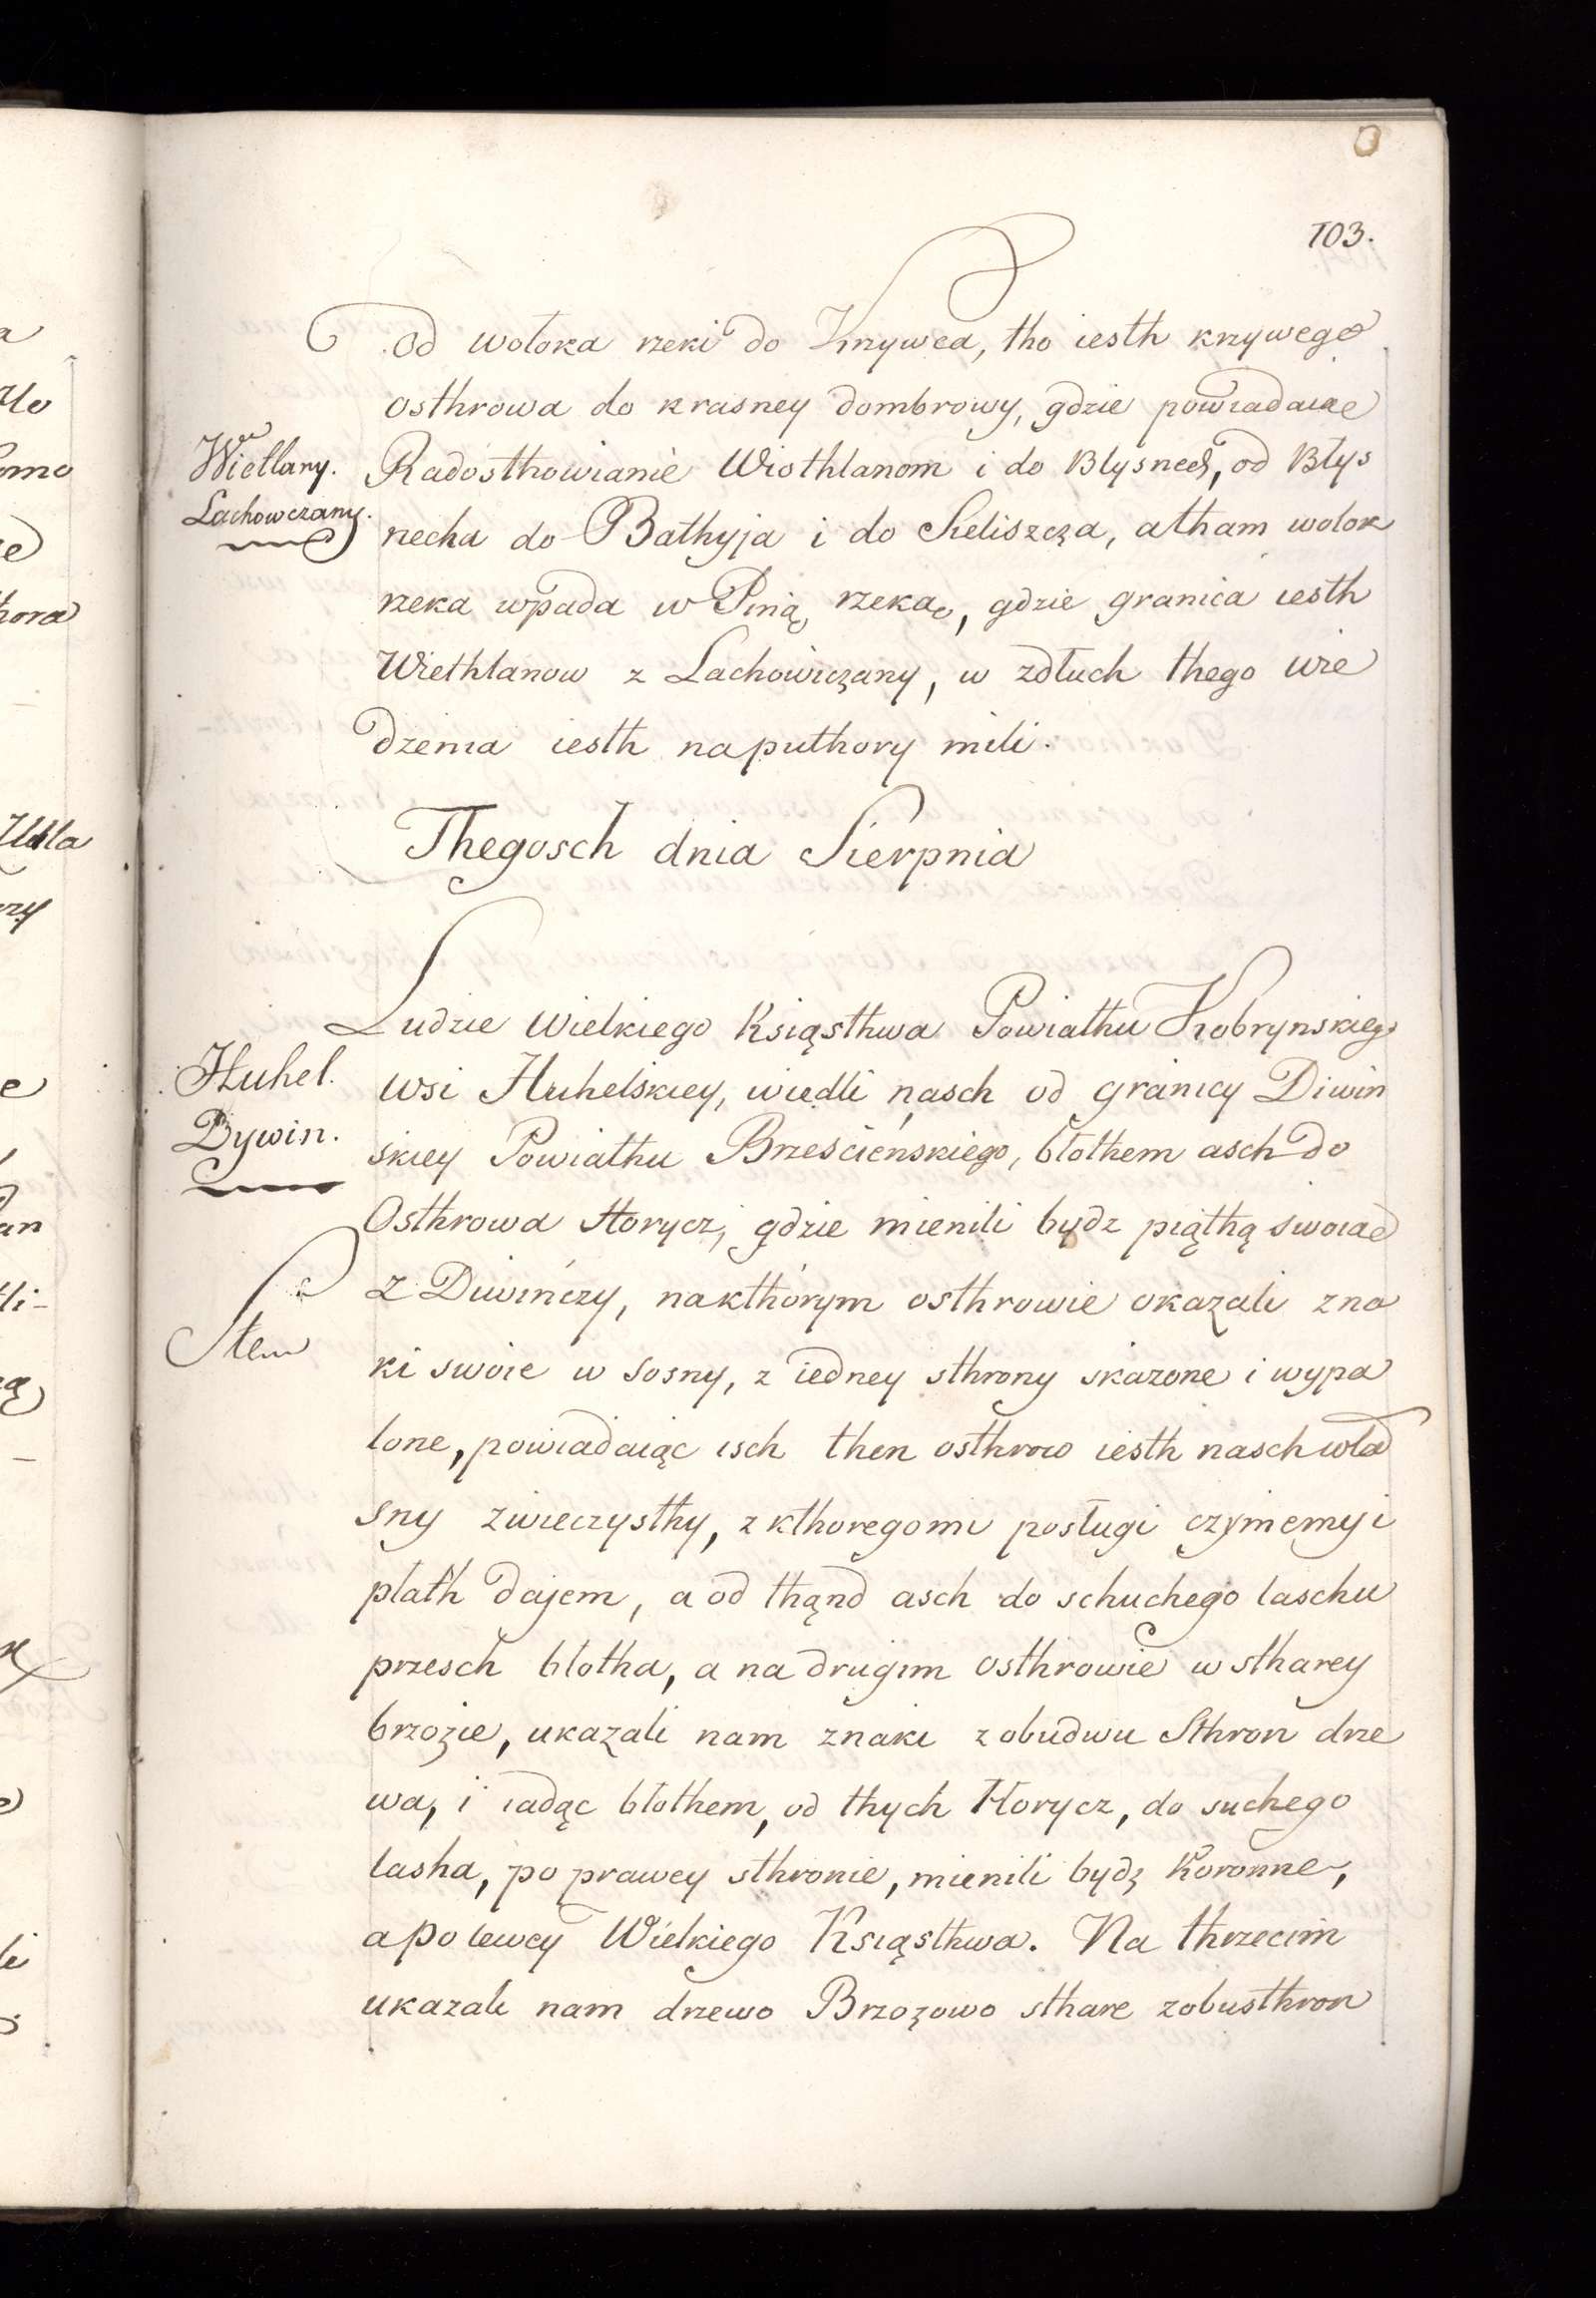 103.
od wołoka rzeki do Krzywca, tho iesth krzywego
osthrowa do krasney dombrowy, gdzie powiadaiąc
Wietlany.
Radosthowianie Wiothlanom i do Błysnech, od Błys
Lachowczany.
necha do Bathyja i do Sieliszcza, atham wolok
rzeka wpada w Piną rzeką, gdzie granica iesth
Wiethlanow z Lachowiczany, w zdłuch thego wie
dzenia iesth naputhory mili.
Thegosch dnia Sierpnia
Ludzie Wielkiego Ksiąsthwa Powiathu Kobrynskiego
Huhel.
wsi Huhelskiey, wiedli nasch od granicy Diwin
Dywin.
skiey Powiathu Brzescienskiego, błothem asch do
Osthrowa Horycz, gdzie mienili bydz piąthą swoiae
z Diwińczy, nakthórym osthrowie okazali zna
ki swoie w sosny, z iedney sthrony skazone i wypa
lone, powiadaiąc isch then osthrow iesth nasch wła
sny zwieczysthy, z kthoregomi posługi czynimemy i
płath dajem, a od thąnd asch do schuchego laschu
przesch błotha, a na drugim osthrowie w stharey
brzozie, ukazali nam znaki z obudwu Sthron drze
wa, i iadąc błothem, od thych Horycz, do suchego
lasha, po prawey sthronie, mienili bydz Koronne,
a po lewey Wielkiego Ksiąsthwa. Na thrzecim
ukazali nam drzewo Brzozowo sthare zobusthron